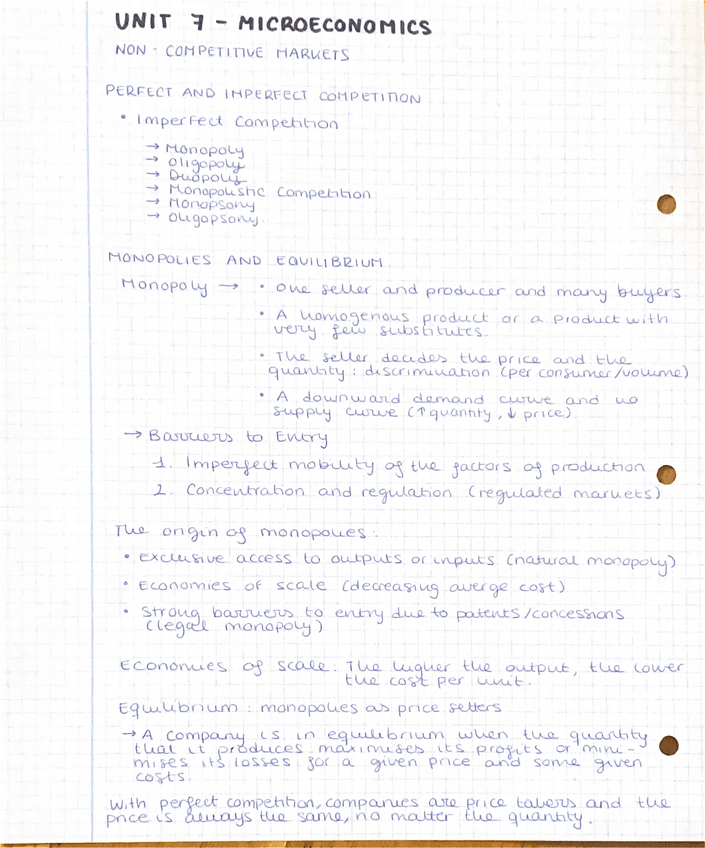 UNIT 7 - MICROECONOMICS
NON - COMPETITIVE MARKETS
PERFECT AND IMPERFECT COMPETITION
• Imperfect Competition
→ Monopoly
→ Oligopoly
→ Duopoly
→ Monopolistic Competition
→ Monopsony
→ Oligopsony
MONOPOLIES AND EQUILIBRIUM
Monopoly → • One seller and producer and many buyers
• A homogenous product or a product with
very few substitutes.
• The seller decides the price and the
quantity : discrimination (per consumer/volume)
• A downward demand curve and no
supply curve (↑ quantity, ↓ price)
→ Barriers to Entry
1. Imperfect mobility of the factors of production
2. Concentration and regulation (regulated markets)
The origin of monopolies :
• Exclusive access to outputs or inputs (natural monopoly)
• Economies of scale (decreasing averge cost)
• Strong barriers to entry due to patents/concessions
(legal monopoly)
Economies of scale : The higher the output, the lower
the cost per unit.
Equilibrium : monopolies as price setters
→ A company is in equilibrium when the quantity
that it produces maximises its profits or mini-
mises its losses for a given price and some given
costs.
With perfect competition, companies are price takers and the
price is always the same, no matter the quantity.